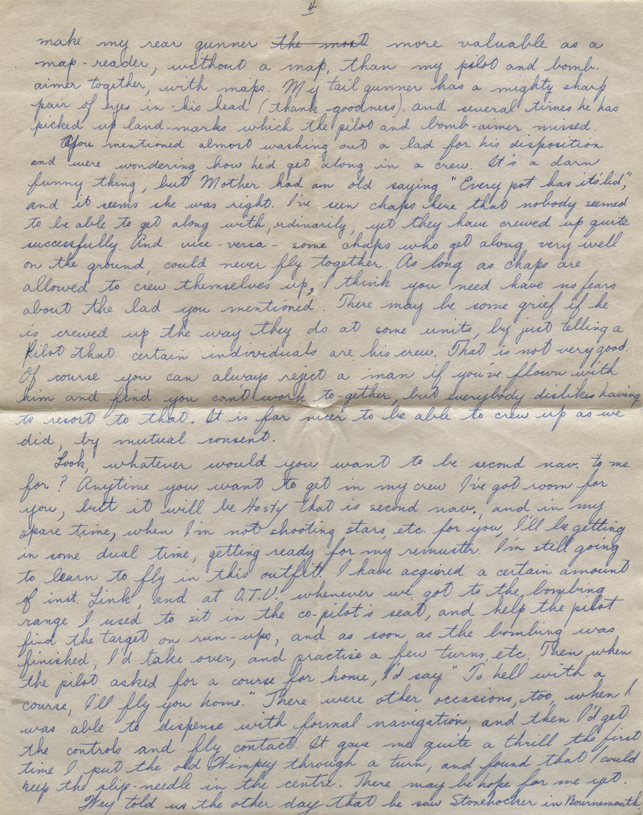 4
make my rear gunner the most more valuable as a
map-reader, without a map, than my pilot and bomb-
aimer together, with maps. My tail gunner has a mighty sharp
pair of eyes in his head (thank goodness), and several times he has
picked up land-marks which the pilot and bomb-aimer missed.
You mentioned almost washing out a lad for his disposition
and were wondering how he'd get along in a crew. It's a darn
funny thing, but Mother had an old saying "Every pot has its lid",
and it seems she was right. I've seen chaps here that nobody seemed
to be able to get along with, ordinarily, yet they have crewed up quite
successfully. And vice-versa - some chaps who get along very well
on the ground, could never fly together. As long as chaps are
allowed to crew themselves up, I think you need have no fears
about the lad you mentioned. There may be some grief if he
is crewed up the way they do at some units, by just telling a
Pilot that certain individuals are his crew. That is not very good.
Of course you can always reject a man if you've flown with
him and find you can't work to-gether, but everybody dislikes having
to resort to that. It is far nicer to be able to crew up as we
did, by mutual consent.
Look, whatever would you want to be second nav. to me
for? Anytime you want to get in my crew I've got room for
you, but it will be Hosty that is second nav., and in my
spare time, when I'm not shooting stars, etc. for you, I'll be getting
in some dual time, getting ready for my remuster. I'm still going
to learn to fly in this outfit. I have acquired a certain amount
of inst. Link, and at O.T.U. whenever we got to the bombing
range I used to sit in the co-pilot's seat, and help the pilot
find the target on run-ups, and as soon as the bombing was
finished, I'd take over, and practise a few turns, etc. Then when
the pilot asked for a course for home, I'd say "To hell with a
course, I'll fly you home." There were other occasions, too, when I
was able to dispense with formal navigation, and then I'd get
the controls and fly contact. It gave me quite a thrill the first
time I put the old Wimpey through a turn, and found that I could
keep the slip-needle in the centre. There may be hope for me yet.
Hey told us the other day that he saw Stonehocker in Bournemouth.